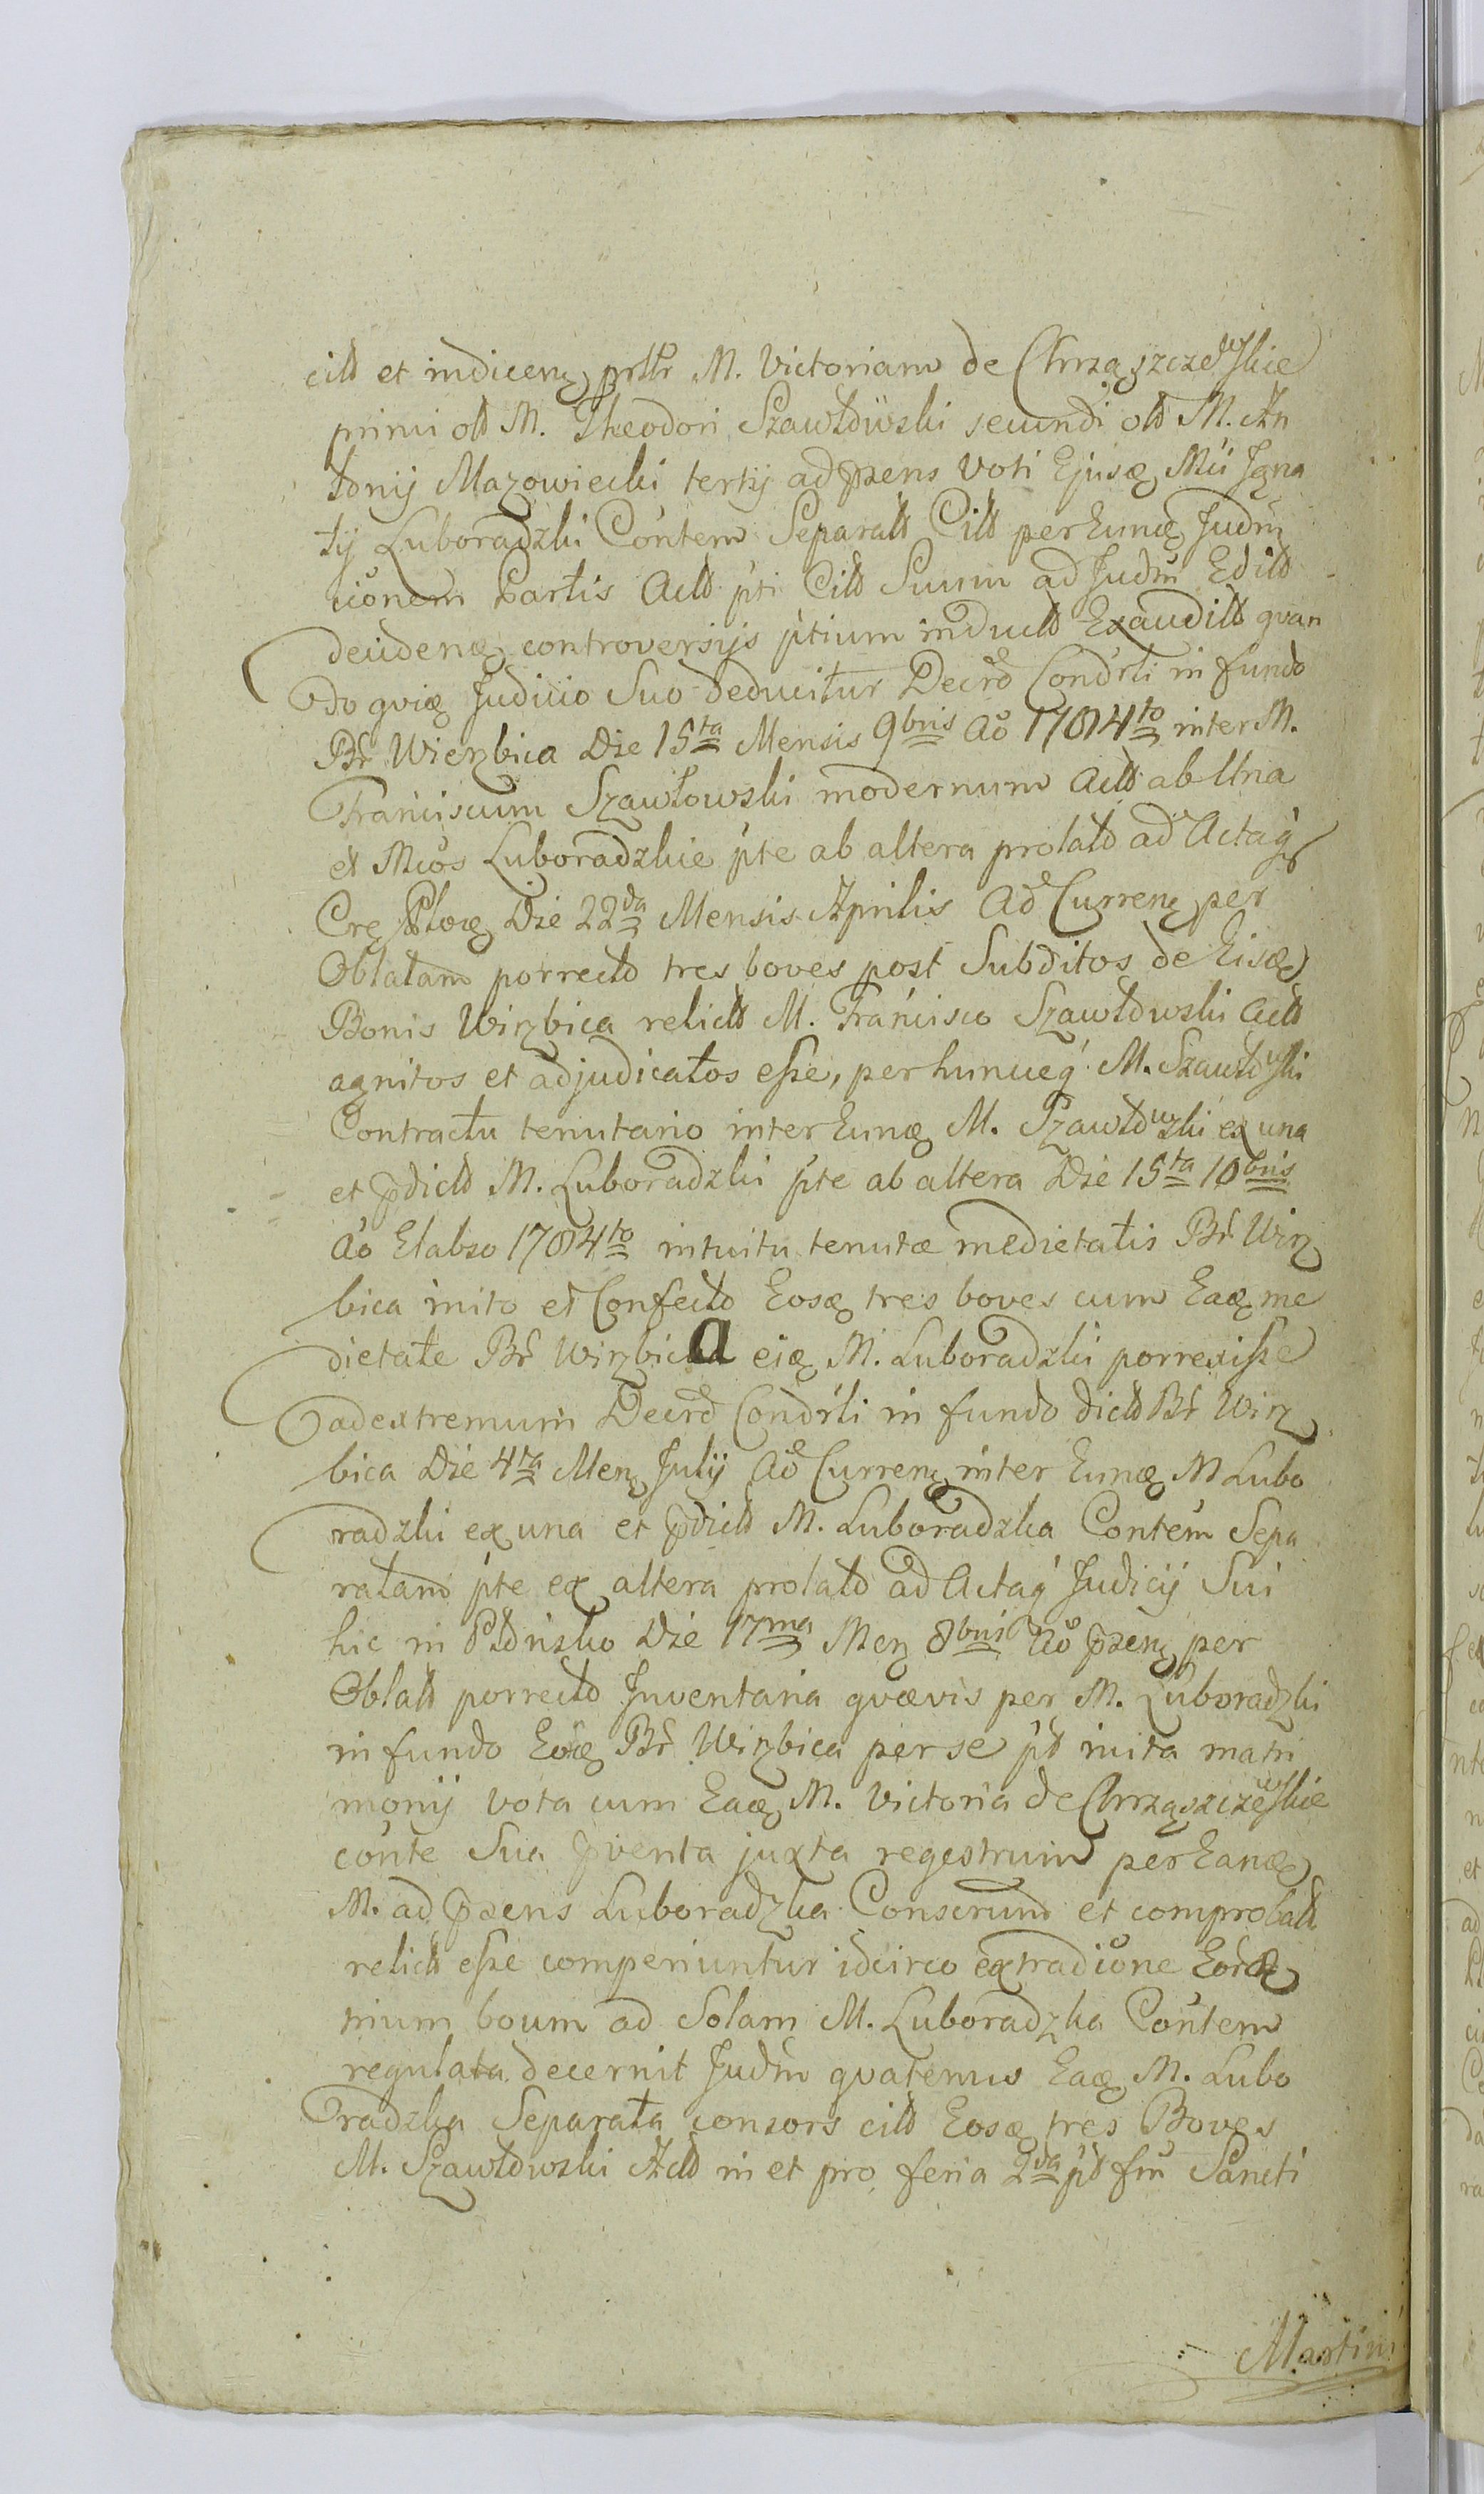 citt et indicenꝫ prttr M. Victoriam de Chrząszczewskie
primi ott M. Theodori Szawłowski secundi ott M. An
tonij Mazowiecki tertij ad p̃sens Voti Ejusꝫ Mci Igna
tij Luboradzki Contem Separatt Citt per Eunꝫ Judm
cionem Partis Actt pti Citt Suum ad Judm Editt
decidenꝫ controversijs ptium induct Exauditt quan
do quiꝫ Judicio Suo deducitur Decrō Condrti in fundo
Br Wierzbica Die 15ta Mensis 9bris Aō 1784to inter M.
Franciscum Szawłowski modernum Actt ab Una
et Mcos Luboradzkie pte ab altera prolato ad Actaq
Crꝫ Płocꝫ Die 22da Mensis Aprilis Aō Currenꝫ per
Oblatam porrecto tres boves post Subditos de Eisꝫ
Bonis Wirzbica relictt M. Francisco Szawłowski Actt
agnitos et adjudicatos esse, per huncuꝫ M. Szawłowski
Contractu tenutario inter Eunꝫ M. Szawłowski ex una
et p̃dictt M. Luboradzki pte ab altera Die 15ta 10bris
Ao Elabso 1784to intuitu tenutæ medietatis Br Wirz
bica inito et Confecto Eosꝫ tres boves cum Eaꝫ me
dietate Br Wirzbica eiꝫ M. Luboradzki porrexisse
ad extremum Decrō Condrti in fundo dictt Br Wirz
bica Die 4ta Menꝫ Julij Aō Currenꝫ inter Eunꝫ M Lubo
radzki ex una et p̃dictt M. Luboradzka Contem Sepa
ratam pte ex altera prolato ad Actaq Judicij Sui
hic in Płońsko Die 17ma Menꝫ 8bris Aō p̃senꝫ per
Oblatt porrecto Inventaria quævis per M. Luboradzki
in fundo Eorꝫ Br Wirzbica per se pt inita matri
monij vota cum Eaꝫ M. Victoria de Chrząszczewskie
conte Sua p̃venta juxta regestrum per Eanꝫ
M. ad p̃sens Luboradzka Conscrum et comprobatt
relictt esse comperiuntur idcirco extradicione Eorꝫ
trium boum ad Solam M. Luboradzka Contem
regulata decernit Judm quatenus Eaꝫ M. Lubo
radzka Separata consors citt Eosꝫ tres Boves
M. Szawłowski Actt in et pro feria 2da pt fm Sancti
Martini